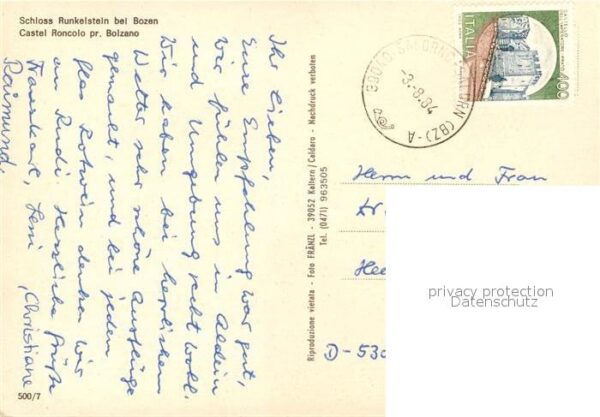 Schloss Runkelstein bei Bozen
Castel Roncolo pr. Bolzano
Ihr Lieben,
Eure Empfehlung war gut,
wir fühlen uns in Aldein
und Umgebung recht wohl.
Wir haben bei herrlichem
Wetter sehr schöne Ausflüge
gemacht, und bei jedem
Glas Rotwein denken wir
an Rudi. Herzliche Grüße
Franskarl, Leni, Christiane
Raimund.
500/7
Riproduzione vietata - Foto FRÄNZL - 39052 Kaltern/Caldaro - Nachdruck verboten
Tel. (0471) 963505
SALORNO
(BZ)-A
-3.-8.84
ITALIA
400
Herrn und Frau
D-530
privacy protection
Datenschutz